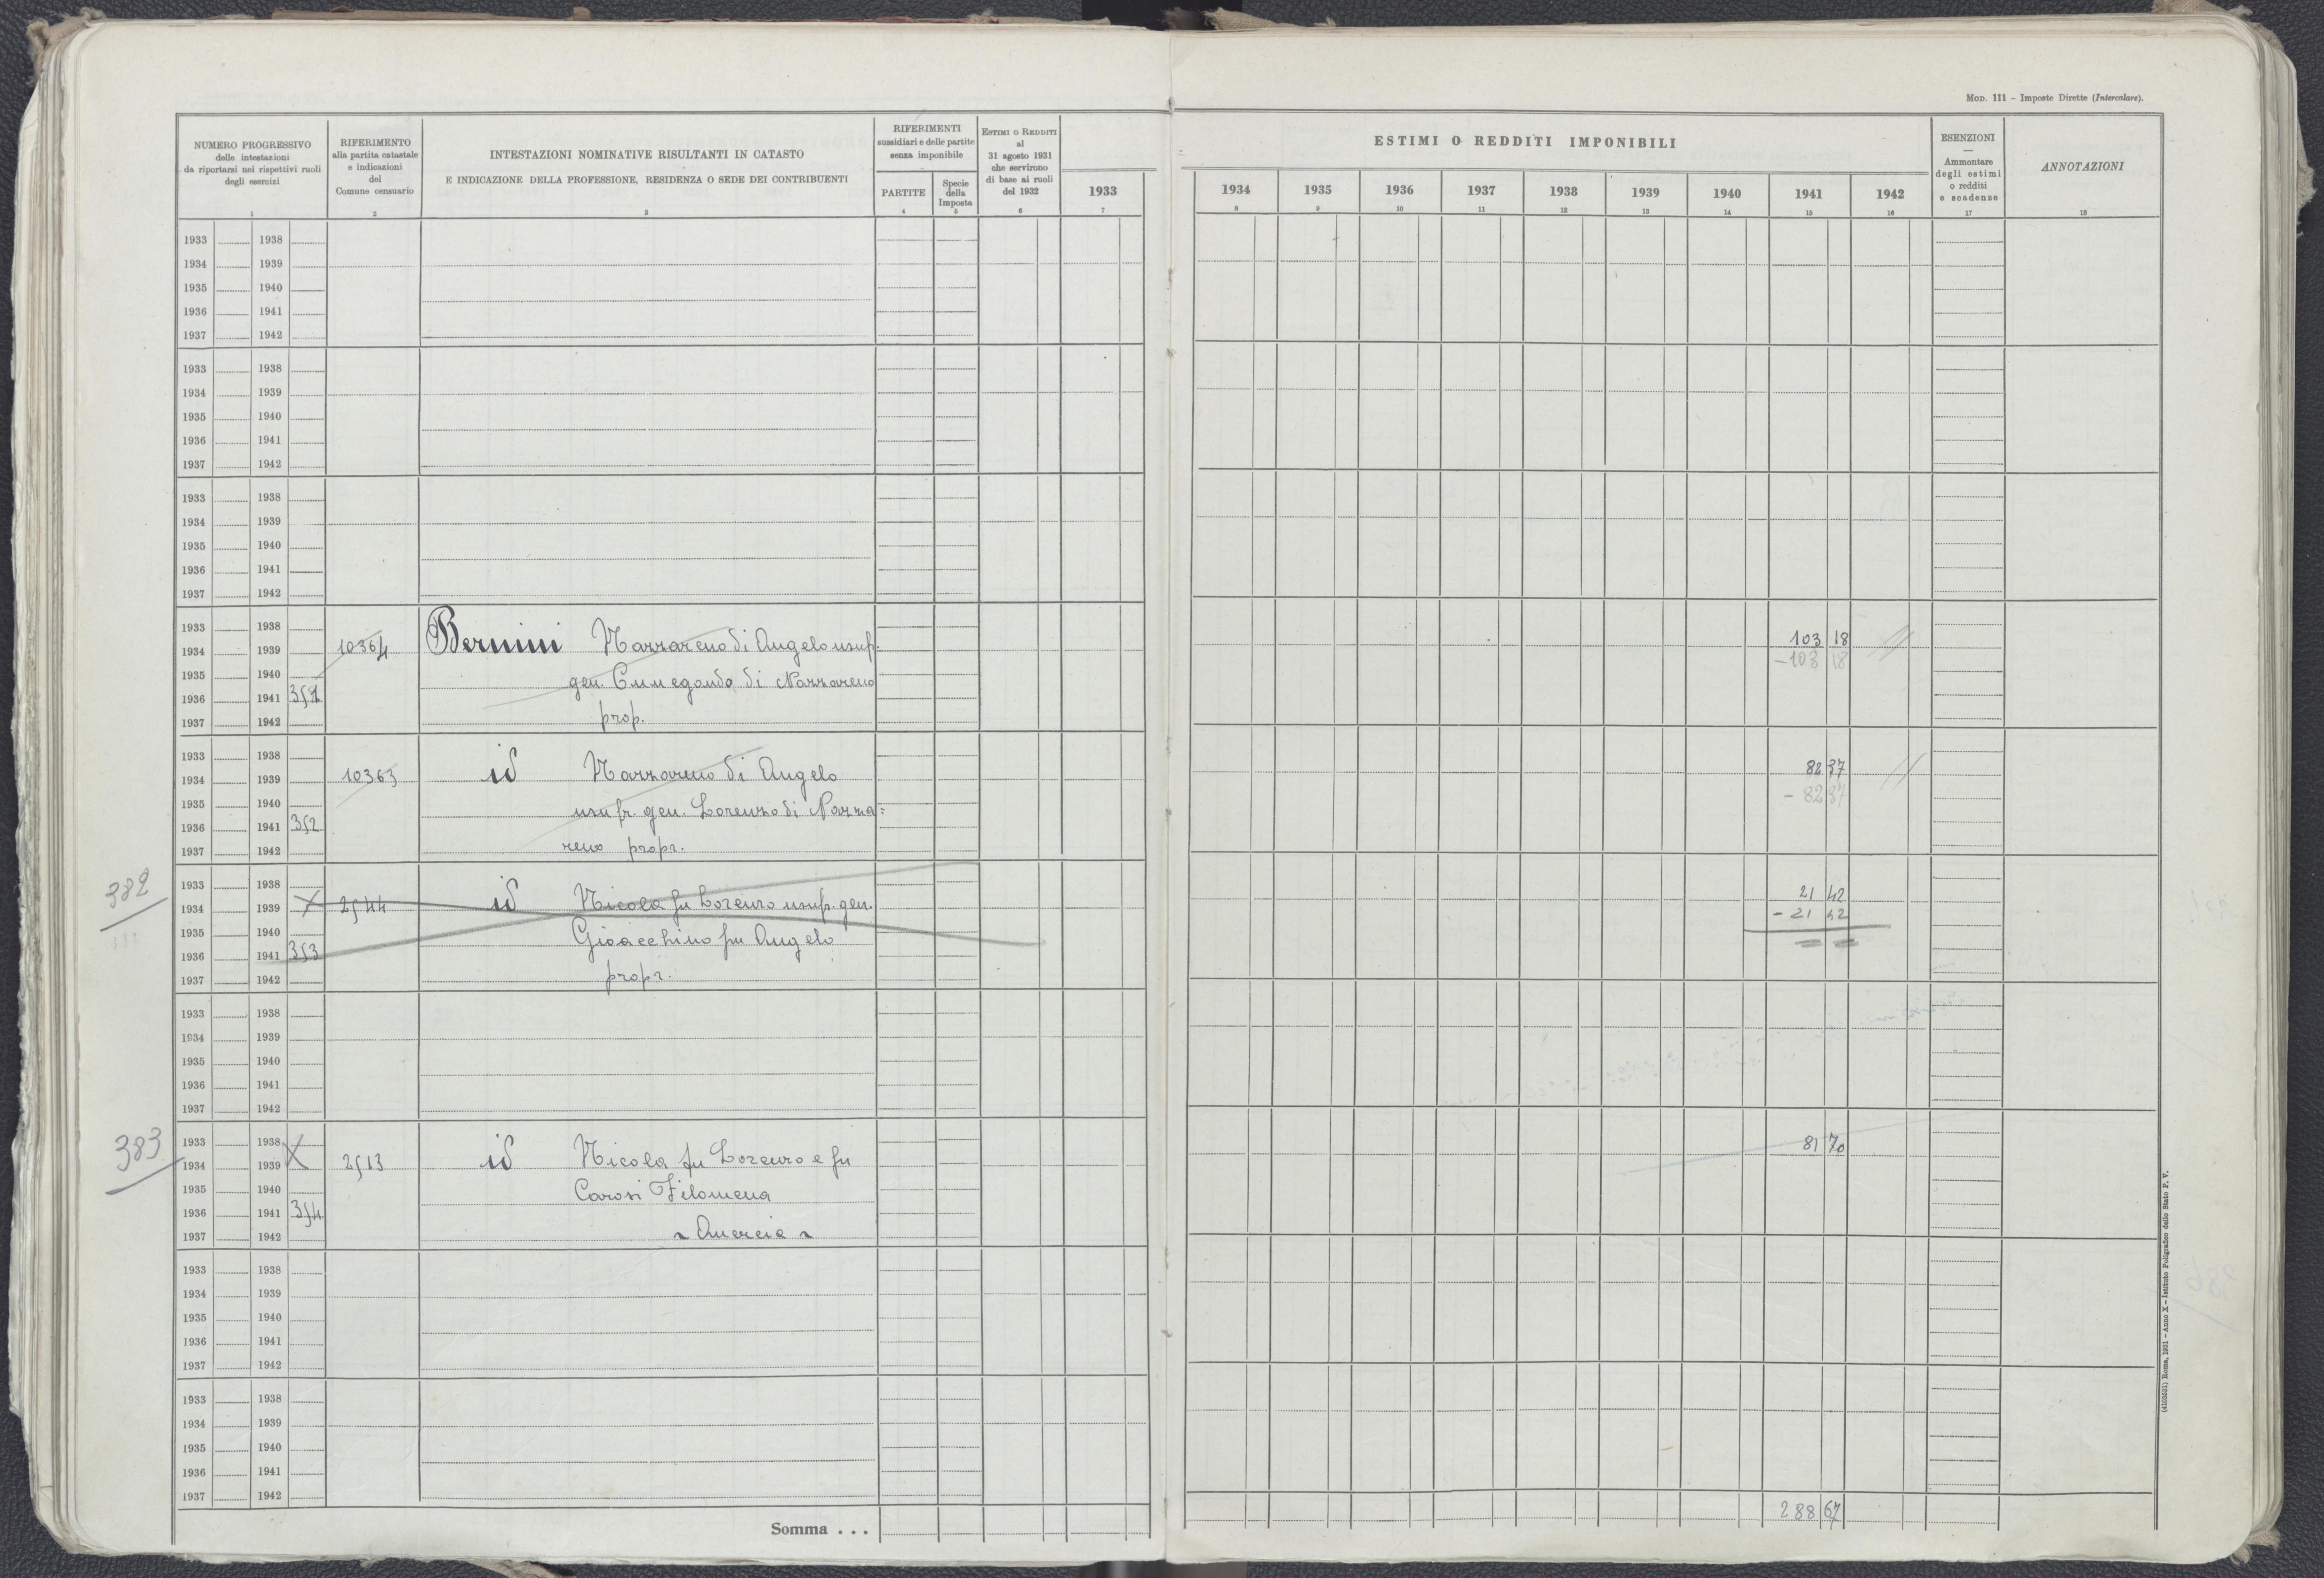 MOD. 111 – Imposte Dirette (Intercalare).
NUMERO PROGRESSIVO
delle intestazioni
da riportarsi nei rispettivi ruoli
degli esercizi
1
RIFERIMENTO
alla partita catastale
e indicazioni
del
Comune censuario
2
INTESTAZIONI NOMINATIVE RISULTANTI IN CATASTO
E INDICAZIONE DELLA PROFESSIONE, RESIDENZA O SEDE DEI CONTRIBUENTI
3
RIFERIMENTI
sussidiari e delle partite
senza imponibile
PARTITE
4
Specie
della
Imposta
5
ESTIMI O REDDITI
al
31 agosto 1931
che servirono
di base ai ruoli
del 1932
6
1933
7
ESTIMI O REDDITI IMPONIBILI
1934 1935 1936 1937 1938 1939 1940 1941 1942
8 9 10 11 12 13 14 15 16
ESENZIONI
—
Ammontare
degli estimi
o redditi
e scadenze
17
ANNOTAZIONI
18
1933 1938
1934 1939
1935 1940
1936 1941
1937 1942
1933 1938
1934 1939
1935 1940
1936 1941
1937 1942
1933 1938
1934 1939
1935 1940
1936 1941
1937 1942
1933 1938
1934 1939 10364 Bernini Nazzareno di Angelo usuf. 103 18
1935 1940 -103 18
gen. Cunegonda di Nazzareno
1936 1941
1937 1942 prop.
1933 1938
1934 1939 10363 id Nazzareno di Angelo 82 37
1935 1940 - 82 37
usufr. gen. Lorenzo di Nazza=
1936 1941 352
1937 1942 reno propr.
382
1933 1938
1934 1939 X 2544 id Nicola fu Lorenzo usuf. gen. 21 42
- 21 42
1935 1940 Gioacchino fu Angelo
1936 1941 353
1937 1942 propr.
1933 1938
1934 1939
1935 1940
1936 1941
1937 1942
383
1933 1938 X 81 70
1934 1939 2513 id Nicola fu Lorenzo e fu
1935 1940 Carosi Filomena
1936 1941 354
1937 1942 ~ Quercia ~
1933 1938
1934 1939
1935 1940
1936 1941
1937 1942
1933 1938
1934 1939
1935 1940
1936 1941
1937 1942
Somma . . . 288 67
(4103531) Roma, 1931 – Anno X – Istituto Poligrafico dello Stato P. V.